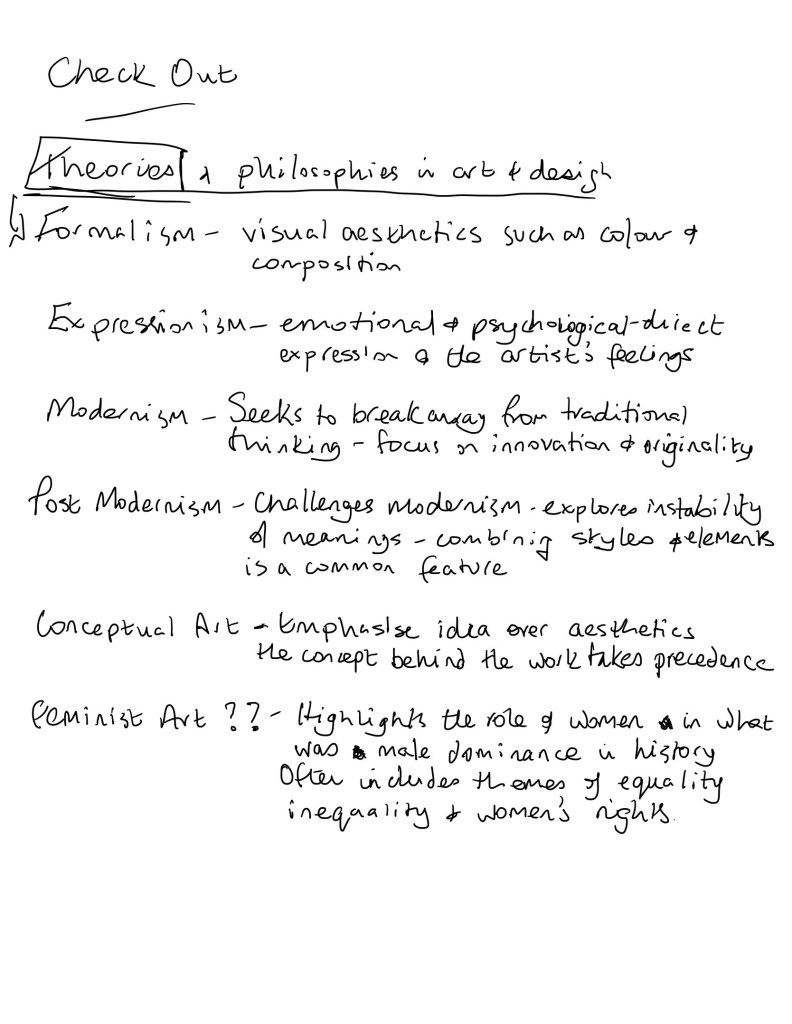 Check Out
Theories & philosophies in art & design
Formalism - visual aesthetics such as colour &
composition
Expressionism - emotional & psychological - direct
expression of the artist's feelings
Modernism - Seeks to break away from traditional
thinking - focus on innovation & originality
Post Modernism - Challenges modernism - explores instability
of meanings - combining styles & elements
is a common feature
Conceptual Art - Emphasise idea over aesthetics
the concept behind the work takes precedence
Feminist Art ?? - Highlights the role of women in what
was male dominance in history
Often includes themes of equality
inequality & women's rights.